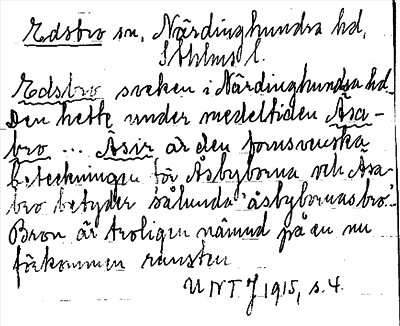 Edsbro sn, Närdinghundra hd,
Sthlms l.
Edsbro socken i Närdinghundra hd.
Den hette under medeltiden Åsa-
bro ... Åsir är den fornsvenska
beteckningen för Åsbyborna och Åsa-
bro betyder sålunda 'åsbybornas bro'.
Bron är troligen nämnd på en nu
förkommen runsten
UNT J 1915, s. 4.